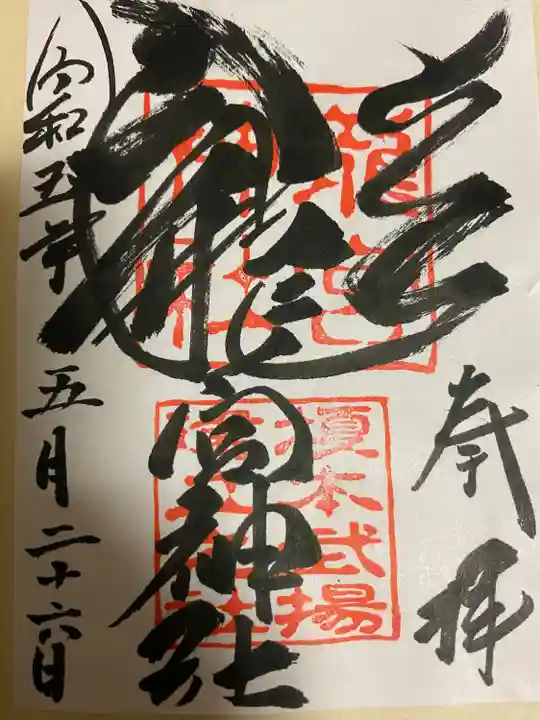 奉拝
龍宮神社
令和五年五月二十六日
龍宮
神社
榎本武揚